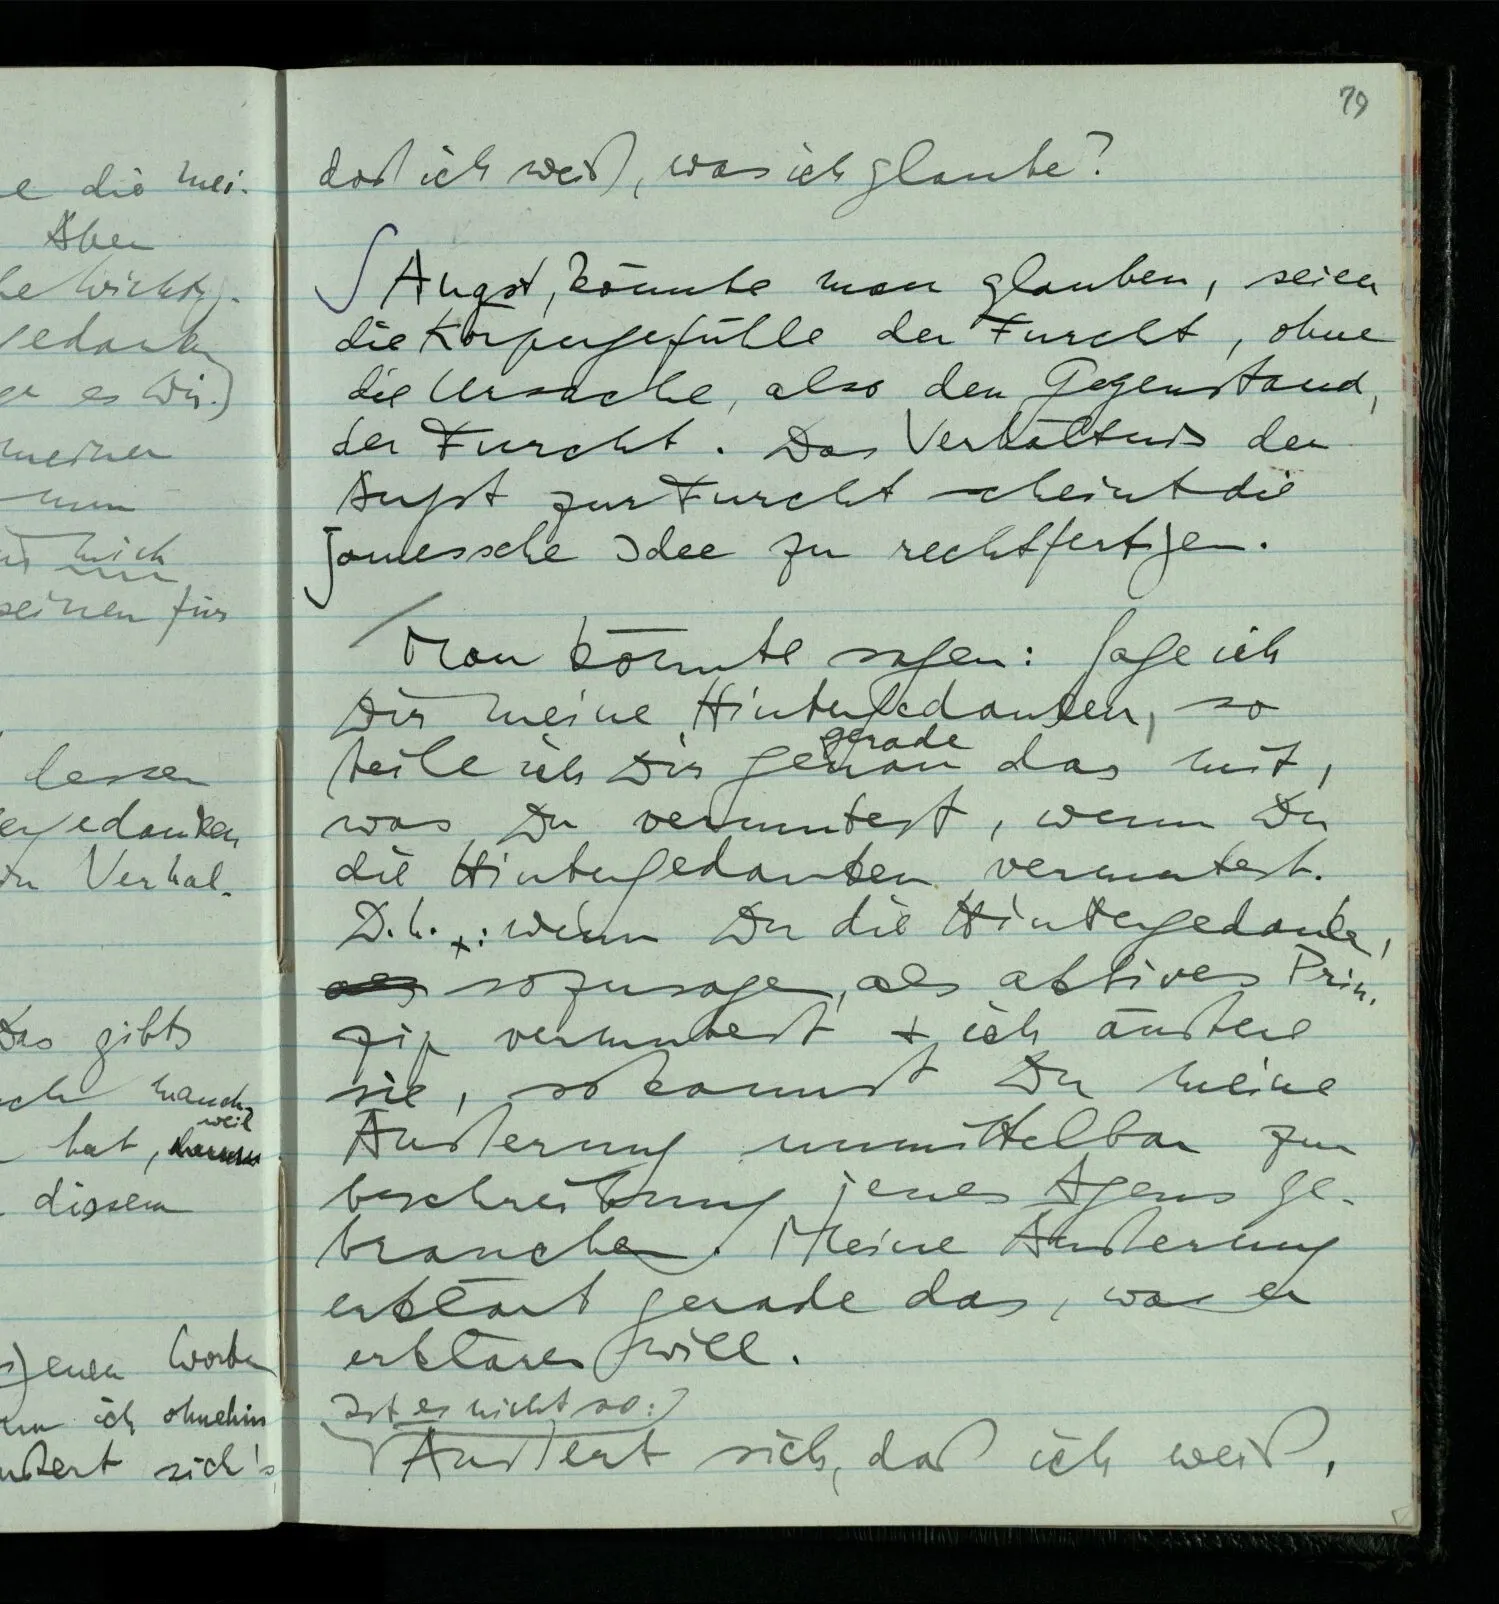 79
e die mei-
Aber
he wichtig-
gedank
ge es Dir.)
meiner
nun
mich
seinen für
dessen
ergedanken
Verhal-
Das gibts
manch-
weil
hat,
diesem
Worten
ich ohnehin
ußert sich's
daß ich weiß, was ich glaube?
∫ Angst, könnte man glauben, seien
die Körpergefühle der Furcht, ohne
die Ursache, also den Gegenstand,
der Furcht. Das Verhältnis der
Angst zur Furcht scheint die
Jamessche Idee zu rechtfertigen.
/ Man könnte sagen: Sage ich
Dir meine Hintergedanken, so
gerade
teile ich Dir genau das mit,
was Du vermutest, wenn Du
die Hintergedanken vermutest.
D.h.: wenn Du die Hintergedanken,
als sozusagen, als aktives Prin-
zip vermutest + ich äußere
sie, so kannst Du meine
Äußerung unmittelbar zur
beschreibung jenes Agens ge-
brauchen. Meine Äußerung
erklärt gerade das, was er
erklären will.
Ist es nicht so:
Äußert sich, daß ich weiß,